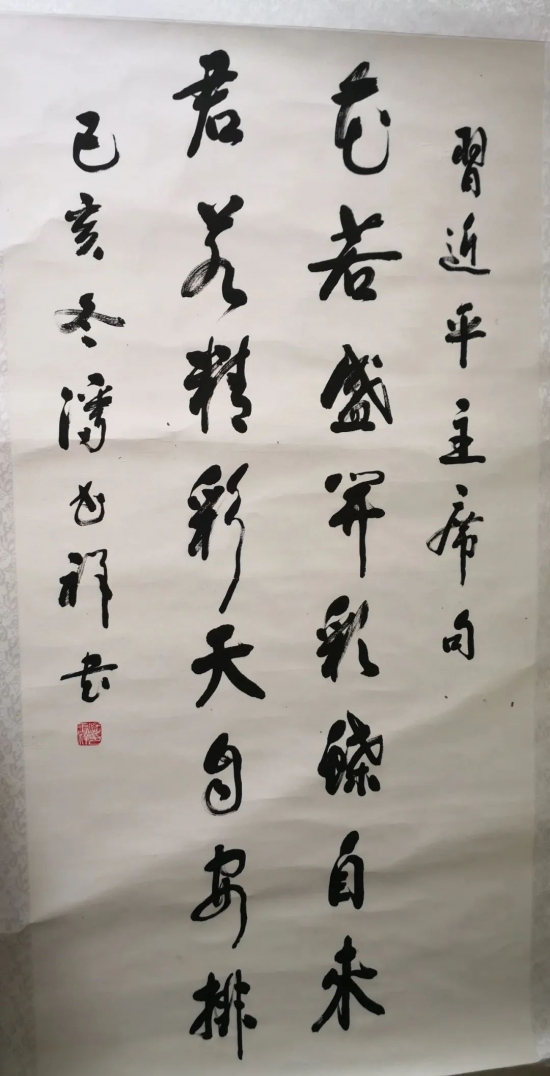 習近平主席句
花若盛開彩蝶自来
君若精彩天自安排
己亥冬潘祥書